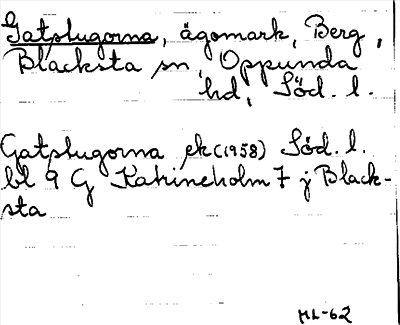 Gatplugorna, ägomark, Berg,
Blacksta sn, Oppunda
hd, Söd. l.
Gatplugorna ek (1958) Söd. l.
bl 9 G Katrineholm 7 j Black-
sta
ML-62